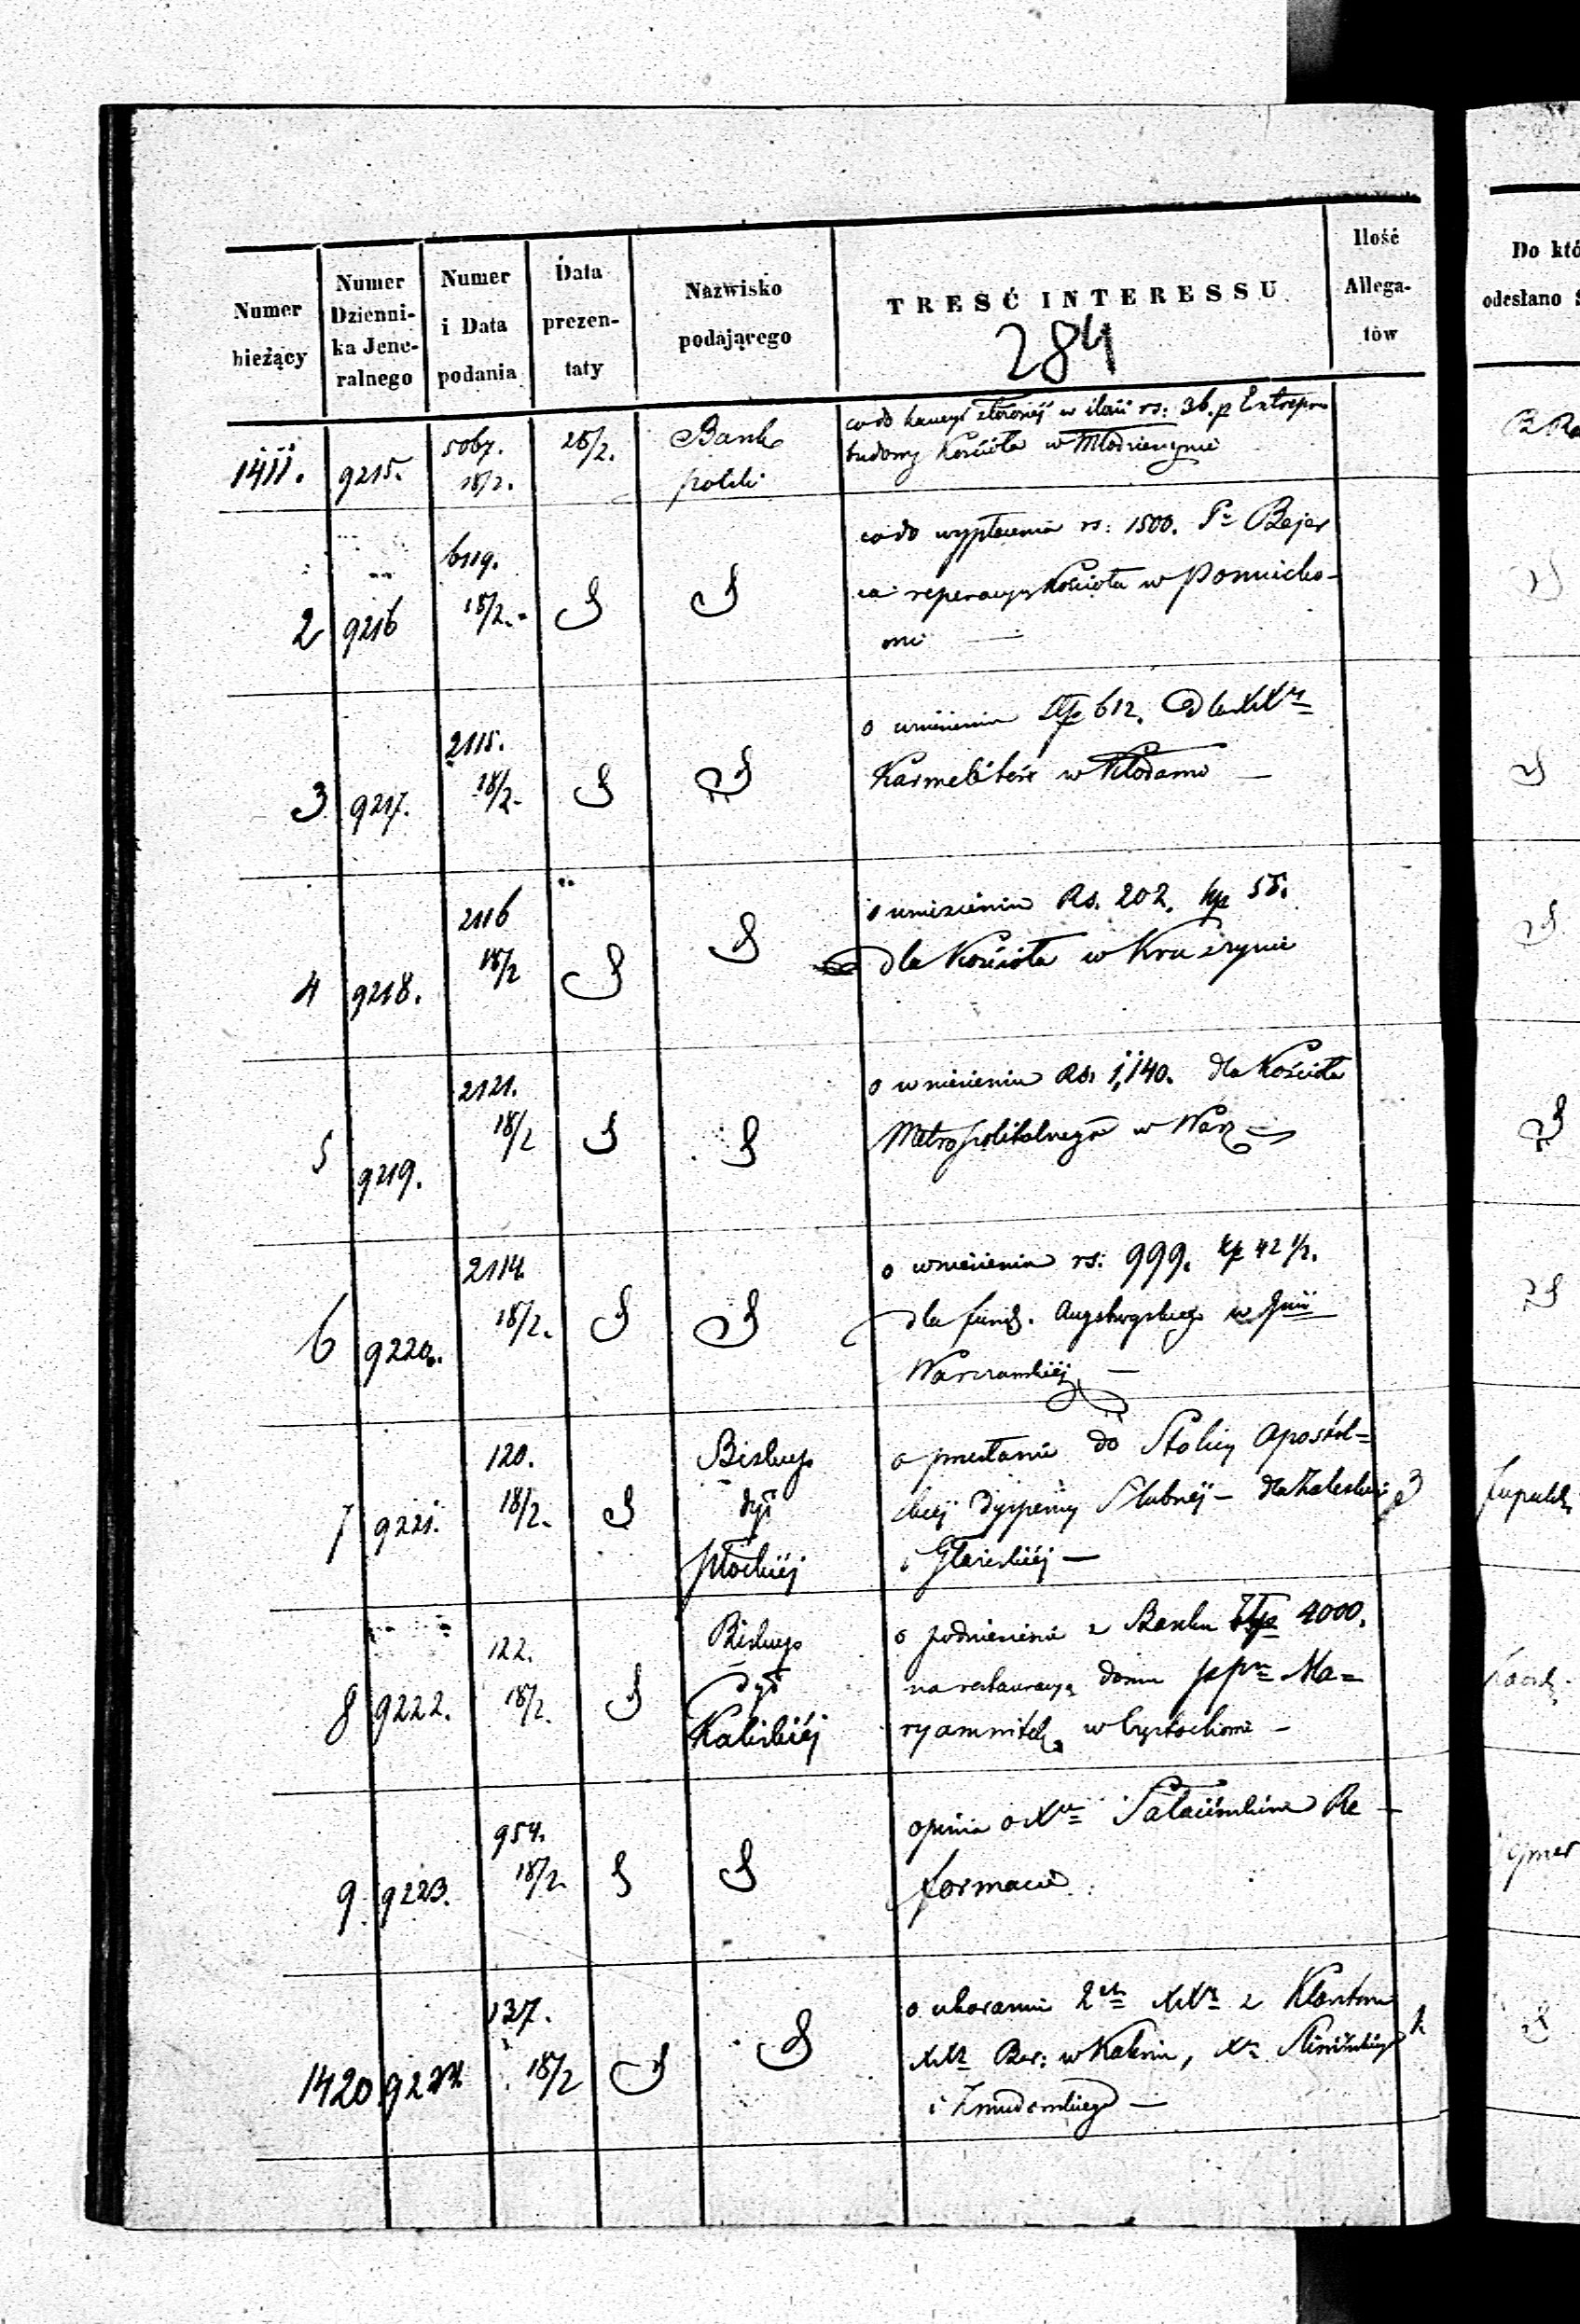 Numer bieżący | Numer Dziennika Jeneralnego | Numer i Data podania | Data prezentaty | Nazwisko podającego | TREŚĆ INTERESSU | Ilość Allegatów
Do któ
odesłano S
284
1411. 9215. 5067. 18/2. 26/2. Bank polski
co do kaucyi złożonéj w ilości rs: 36. p Entrepr
budowy Kościoła w Młodzieszynie
2 9216 6119. 18/2.
co do wypłacenia rs: 1500. Pu Bejer
za reperacyą Kościoła w Pomiecho-
wie —
3 9217. 2115. 18/2.
o wniesieniu Złp 612. dla XXy
Karmelitów w Kłodawie —
4 9218. 2116 18/2
o wniesieniu Rs. 202. kp 55.
dla Kościoła w Kruszynie
5 9219. 2121. 18/2
o wniesieniu Rs. 1,140. dla Kościoła
Metropolitalnego w Warz
6 9220. 2114. 18/2.
o wniesieniu rs: 999. kp 42 1/2.
dla fund. Augustowskiego w Gnii
Warszawskiéj —
7 9221. 120. 18/2. Biskup dyi Płockiéj
o przesłanie do Stolicy Apostol=
skiéj dyspensy Slubnéj — dla Zaleskiego 3
i —
8 9222. 122. 18/2. Biskup dyi Kaliskiéj
o podniesienie z Banku Złp 4000.
na restauracyą domu pp Ma=
ryawitek w Częstochowie —
9. 9223. 954. 18/2.
opinia o Xu Re-
formacie
1420 9224 137. 18/2
o ukaranie 2ch XXy z Klasztoru
XXy Ber: w Kole, Xa 2
i Zmudowskiego —